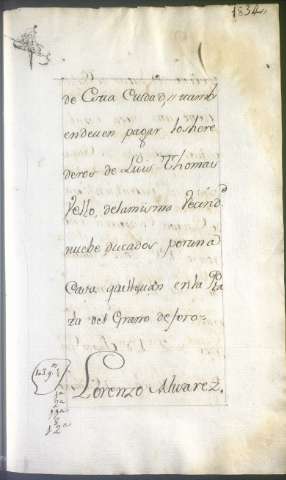 1834
de Coria Cuidad, y tambn
en deuen pagar los here
deros de Luis Thomas
Vello, de la misma Vecind.d
nuebe ducados, por una
Casa que llevan en la Pla
za del Grano de foro-
Lorenzo Alvarez.